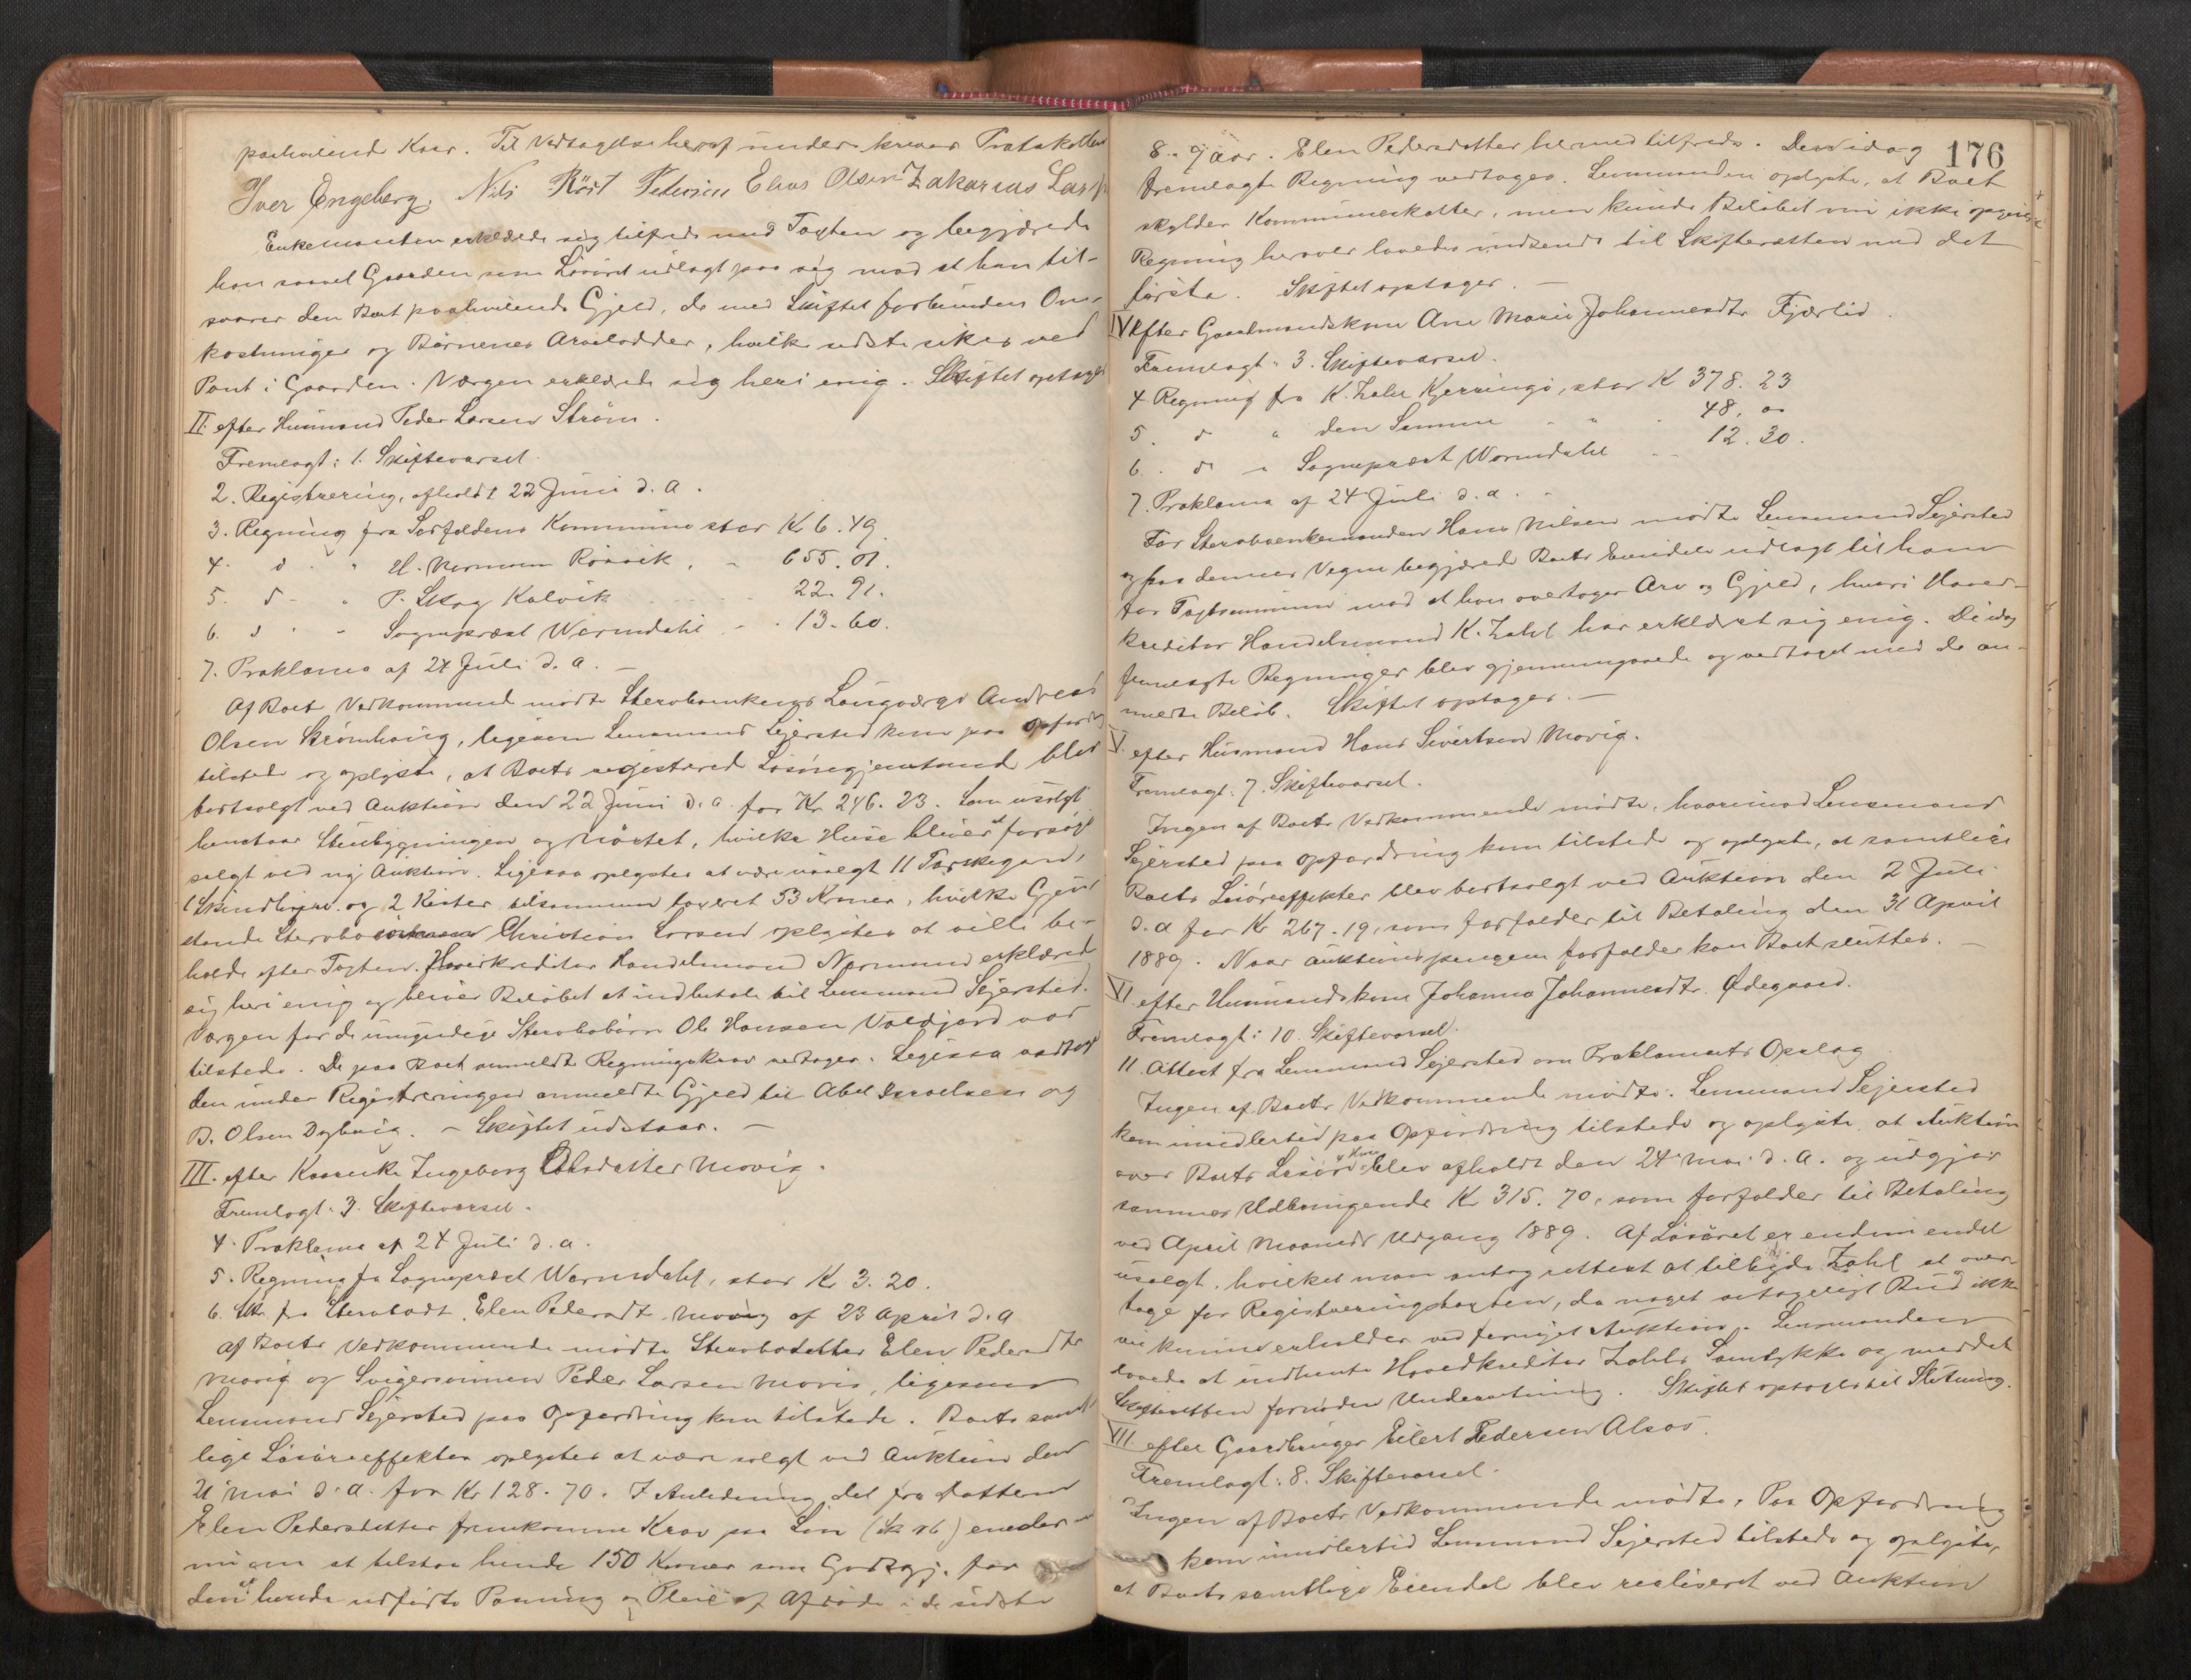 paahvilende Krav. Til Vedtagelse heraf underskrives Protokollen
Iver Engeberg. Nils Röst Pedersen Elias Olsen Zakarias Lars
Enkemanden erklærede sig tilfreds med Taxten og begjærede
han saavel Gaarden som Løsøret udlagt paa sig mod at han til-
svarer den Boet paahvilende Gjæld, de med Skiftet forbundne Om-
kostninger og Børnenes Arvelodder, hvilke sidste sikres ved
Pant i Gaarden. Værgen erklærede sig heri enig. Skiftet optages
II. efter Husmand Peder Larsen Strøm.
Fremlagt: 1. Skiftevarsel.
2. Registrering, afholdt 22 Juni d. a.
3. Regning fra Sørfoldens Kommune stor Kr 6. 49
4. d. " H. Normann Rørvik, - 655. 01.
5. d - " P. Skog Kalvik - 22. 91.
6. d " - Sogneprest Wormdahl - 13. 60.
7. Proklama af 24 Juli d. a. -
Af Boets Vedkommende mødte Sterboenkens Laugværge Andreas
Olsen Strømhaug, ligesom Lensmand Sejersted kom paa Opfordring
tilstede og oplyste, at Boets registrerede Løsøregjenstande blev
bortsolgt ved Auktion den 22 Juni d. a. for Kr 246. 23. Som usolgt
henstaar Stuebygningen og Nøstet, hvilke Huse bliver at forsøge
solgt ved ny Auktion. Ligesaa oplystes at være usolgt 11 Torskegarn,
1 Skindhyre og 2 Kister tilsammen taxeret 53 Kroner, hvilke Gjen-
stande Sterbo Christian Larsen oplystes at ville be-
holde efter Taxten. Hovedkreditor Handelsmand Normann erklærede
sig heri enig og bliver Beløbet at indbetale til Lensmand Sejersted.
Værgen for de umyndige Sterbobørn Ole Hansen Valdjord var
tilstede. De paa Boet anmeldte Regningskrav vedtoges. Ligesaa vedtoges
den under Registreringen anmeldte Gjæld til Abel Israelsen og
B. Olsen Dybvig. - Skiftet udstaar. -
III. efter Kaarenke Ingeborg Olsdatter Movig.
Fremlagt: 3. Skiftevarsel.
4. Proklama af 24 Juli d. a.
5. Regning fra Sogneprest Wormdahl, stor Kr 3. 20.
6. Skr. fra Sterbodt. Elen Pedersdt. Movig af 23 April d. a
Af Boets Vedkommende mødte Sterbodatter Elen Pedersdtr
Movig og Svigersønnen Peder Larsen Movig, ligesom
Lensmand Sejersted paa Opfordring kom tilstede. Boets samt-
lige Løsøreeffekter oplystes at være solgt ved Auktion den
21 Mai d. a. for Kr 128. 70. I Anledning det fra Datteren
Elen Pedersdatter fremkomne Krav paa Løn (Sk. № 6) enedes
mi om at tilstaa hende 150 Kroner som Godtgj. for
den af hende udførte Pasning og Pleie af Afdøde i de sidste
176
8-9 aar. Elen Pedersdatter hermed tilfreds. Den idag
fremlagte Regning vedtoges. Lensmanden oplyste, at Boet
skylder Kommuneskatter, men kunde Beløbet nu ikke opgives
Regning herover lovedes indsendt til Skifteretten med det
første. Skiftet optages. -
IV Efter Gaardmandskone Ane Marie Johannesdtr Fjærlid.
Fremlagt: 3. Skiftevarsel.
4 Regning fra K. Zahl Kjerringø, stor K 378. 23
5. d " den Samme " " 48. 00
6. d " Sogneprest Wormdahl - 12. 30.
7. Proklama af 24 Juli d. a.
For Sterboenkemanden Hans Nilsen mødte Lensmand Sejersted
og paa dennes Vegne begjærede Boets Eiendele udlagt til ham
for Taxtsummen mod at han overtager Arv og Gjæld, hvori Hoved-
kreditor Handelsmand K. Zahl har erklæret sig enig. De idag
fremlagte Regninger blev gjennemgaaede og vedtaget med de an-
meldte Beløb. Skiftet optages. -
V. efter Husmand Hans Sivertsen Movig.
Fremlagt: 7. Skiftevarsel.
Ingen af Boets Vedkommende mødte, hvorimod Lensmand
Sejersted paa Opfordring kom tilstede og oplyste, at samtlige
Boets Løsøreeffekter blev bortsolgt ved Auktion den 2 Juli
d. a for Kr 267. 19, som forfalder til Betaling den 31 April
1889. Naar Auktionspengene forfalder kan Boet sluttes. -
VI. efter Husmandskone Johanna Johannesdtr. Ødegaard.
Fremlagt: 10. Skiftevarsel.
11. Attest fra Lensmand Sejersted om Proklamaets Opslag
Ingen af Boets Vedkommende mødte. Lensmand Sejersted
kom imidlertid paa Opfordring tilstede og oplyste, at Auktion
over Boets Løsøre blev afholdt den 24 Mai d. a. og udgjør
sammes Udbringende Kr 315. 70, som forfalder til Betaling
ved April Maaneds Udgang 1889. Af Løsøret er endnu endel
usolgt, hvilket man antog rettest at tilbyde Zahl at over-
tage for Registreringstaxten, da noget antageligt Bud ikke
vil kunne erholdes ved fornyet Auktion. Lensmanden
lovede at indhente Hovedkreditor Zahls Samtykke og meddele
Skifteretten fornøden Underretning. Skiftet optoges til Slutning.
VII efter Gaardbruger Eilert Pedersen Alsos.
Fremlagt: 8. Skiftevarsel.
Ingen af Boets Vedkommende mødte. Paa Opfordring
kom imidlertid Lensmand Sejersted tilstede og oplyste,
at Boets samtlige Eiendele blev realiseret ved Auktion